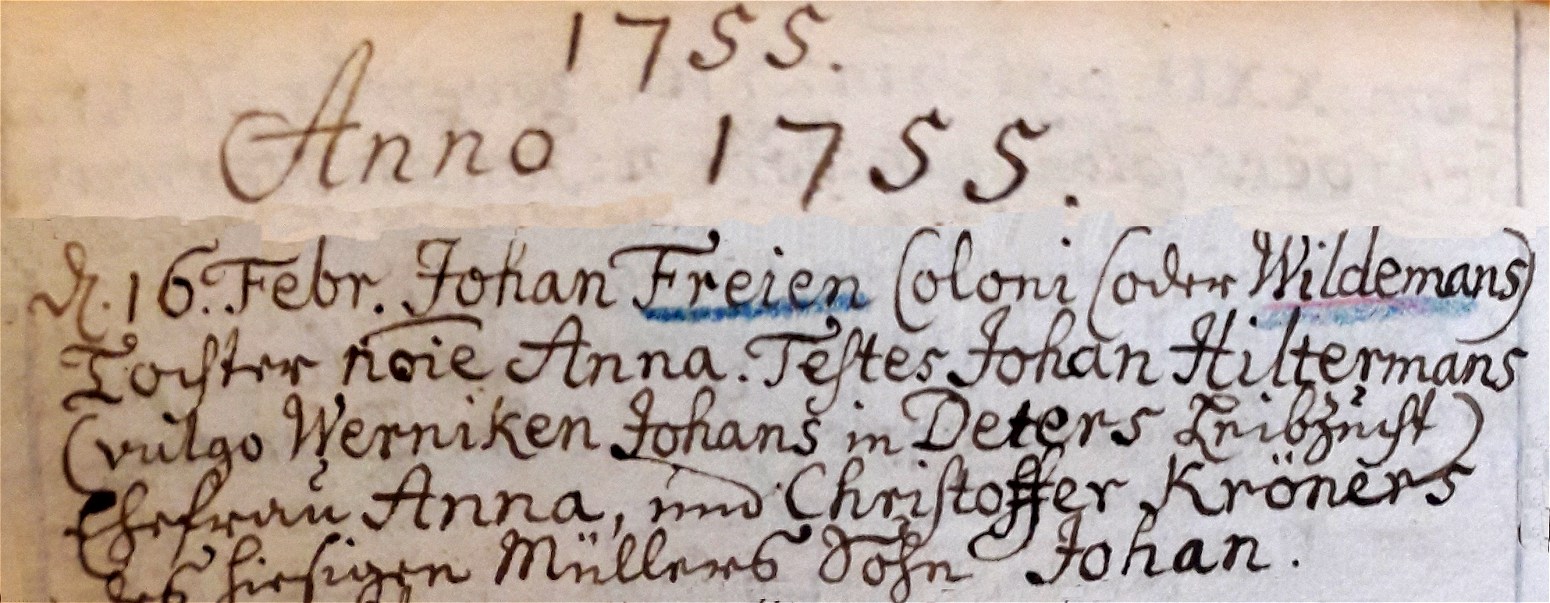 1755.
Anno 1755.
d. 16. Febr. Johan Freien Coloni (oder Wildemans)
Tochter noie Anna. Testes Johan Hiltermans
(vulgo Werniken Johans in Deters Leibzucht)
Ehefrau Anna, und Christoffer Kröners
des hiesigen Müllers Sohn Johan.